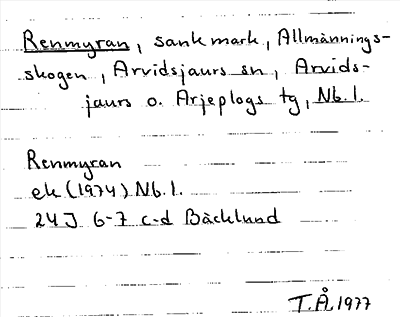 Renmyran, sankmark, Allmännings-
skogen, Arvidsjaurs sn, Arvids-
jaurs o. Arjeplogs tg, Nb. l.
Renmyran
ek (1974) Nb. l.
24J 6-7 c-d Bäcklund
T.Å. 1977